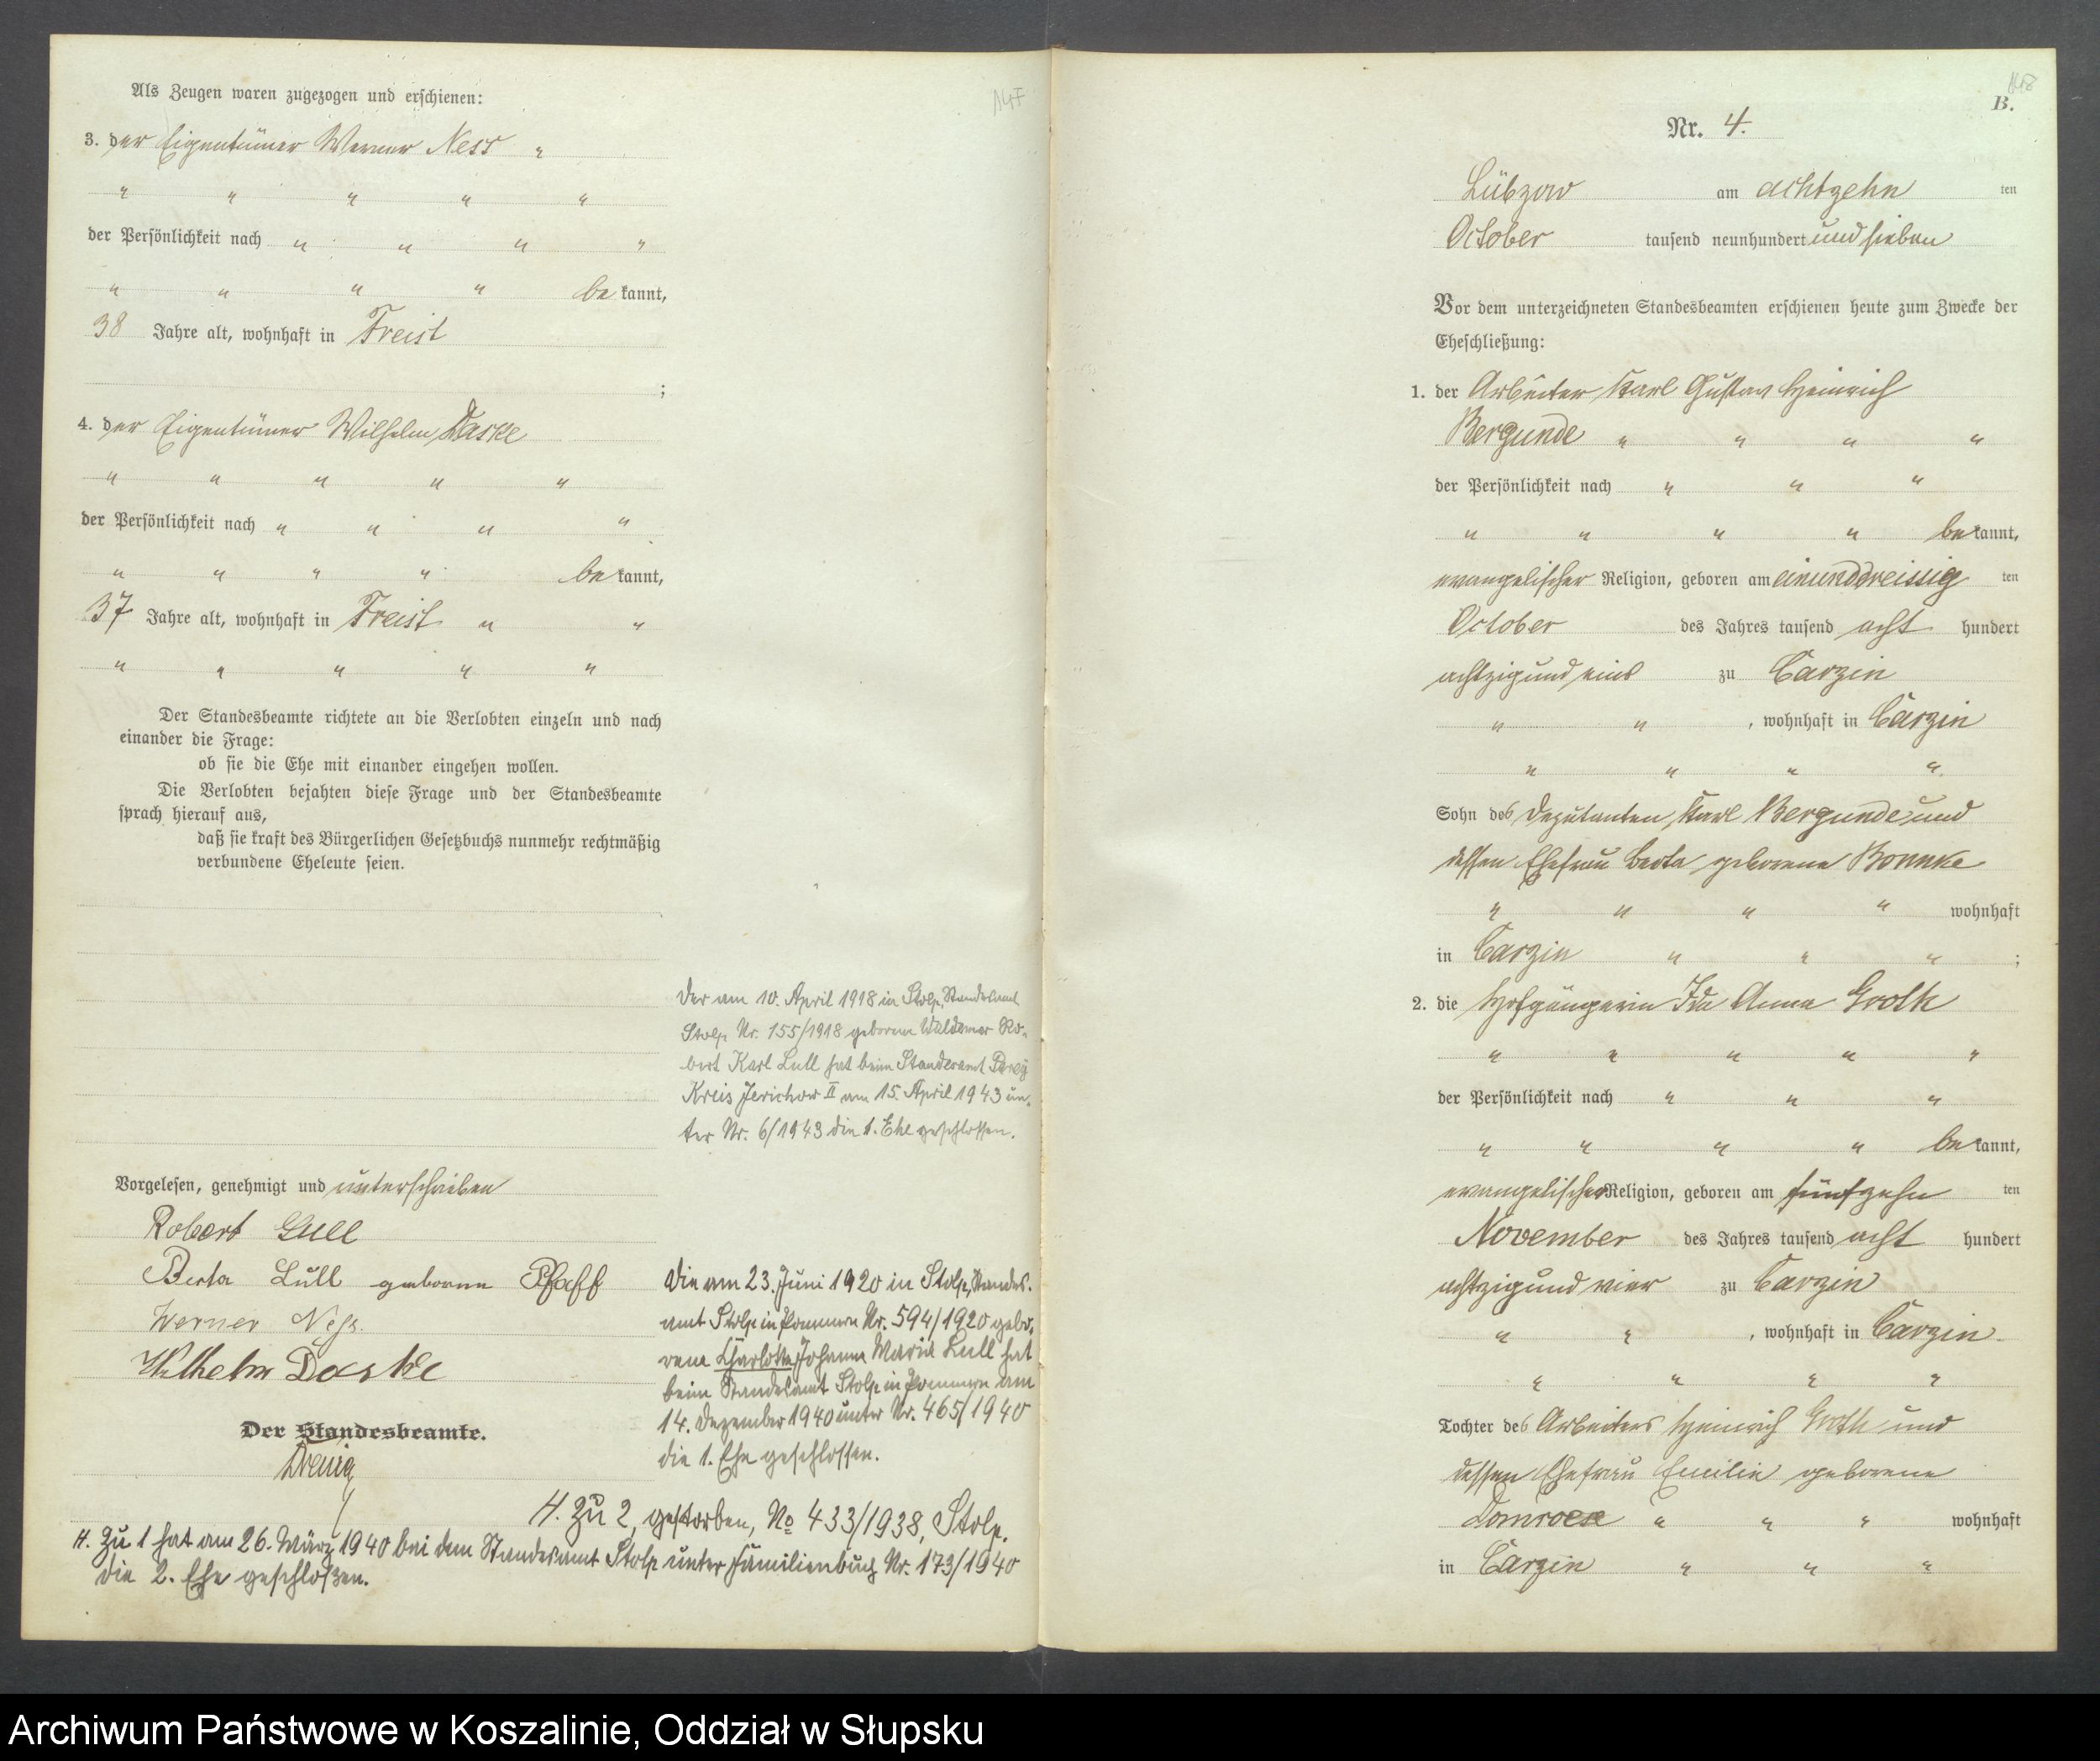 147
Als Zeugen waren zugezogen und erschienen:
3. der Eigentümer Werner Ness "
" " " " "
der Persönlichkeit nach " " " "
" " " " bekannt,
38 Jahre alt, wohnhaft in Freist
;
4. der Eigentümer Wilhelm Daske
" " " " "
der Persönlichkeit nach " " " "
" " " " bekannt,
37 Jahre alt, wohnhaft in Freist " "
" " " " "
Der Standesbeamte richtete an die Verlobten einzeln und nach
einander die Frage:
ob sie die Ehe mit einander eingehen wollen.
Die Verlobten bejahten diese Frage und der Standesbeamte
sprach hierauf aus,
daß sie kraft des Bürgerlichen Gesetzbuchs nunmehr rechtmäßig
verbundene Eheleute seien.
Der am 10. April 1918 in Stolp, Standesamt
Stolp Nr. 155/1918 geborene Waldemar Ro-
bert Karl Lull hat beim Standesamt Parey
Kreis Jerichow II am 15. April 1943 un-
ter Nr. 6/1943 die 1. Ehe geschlossen.
Vorgelesen, genehmigt und unterschrieben
Robert Lull
Berta Lull geborene Pfaff
Werner Neß.
Wilhelm Daske
Der Standesbeamte.
Die am 23. Juni 1920 in Stolp, Standes-
amt Stolp in Pommern Nr. 594/1920 gebo-
rene Charlotte Johanna Maria Lull hat
beim Standesamt Stolp in Pommern am
14. Dezember 1940 unter Nr. 465/1940
die 1. Ehe geschlossen.
H. Zu 2, gestorben, No 433/1938, Stolp.
H. Zu 1 hat am 26. März 1940 bei dem Standesamt Stolp unter Familienbuch Nr. 173/1940
die 2. Ehe geschloßen.
148
B.
Nr. 4.
Lübzow am achtzehn ten
October tausend neunhundert und sieben
Vor dem unterzeichneten Standesbeamten erschienen heute zum Zwecke der
Eheschließung:
1. der Arbeiter Karl Gustav Heinrich
Bergunde " " " "
der Persönlichkeit nach " " "
" " " " bekannt,
evangelischer Religion, geboren am einunddreissig ten
October des Jahres tausend acht hundert
achtzig und eins zu Carzin
" " , wohnhaft in Carzin
" " " "
Sohn des Deputanten Karl Bergunde und
dessen Ehefrau Berta geborene Bonnke
" " " " wohnhaft
in Carzin " " " ;
2. die Hofgängerin Ida Anna Groth
" " " " "
der Persönlichkeit nach " " "
" " " " bekannt,
evangelischer Religion, geboren am fünfzehn ten
November des Jahres tausend acht hundert
achtzig und vier zu Carzin
" " , wohnhaft in Carzin
" " " "
Tochter des Arbeiters Heinrich Groth und
dessen Ehefrau Emilie geborene
Domroese " " " wohnhaft
in Carzin " " "
Archiwum Państwowe w Koszalinie, Oddział w Słupsku